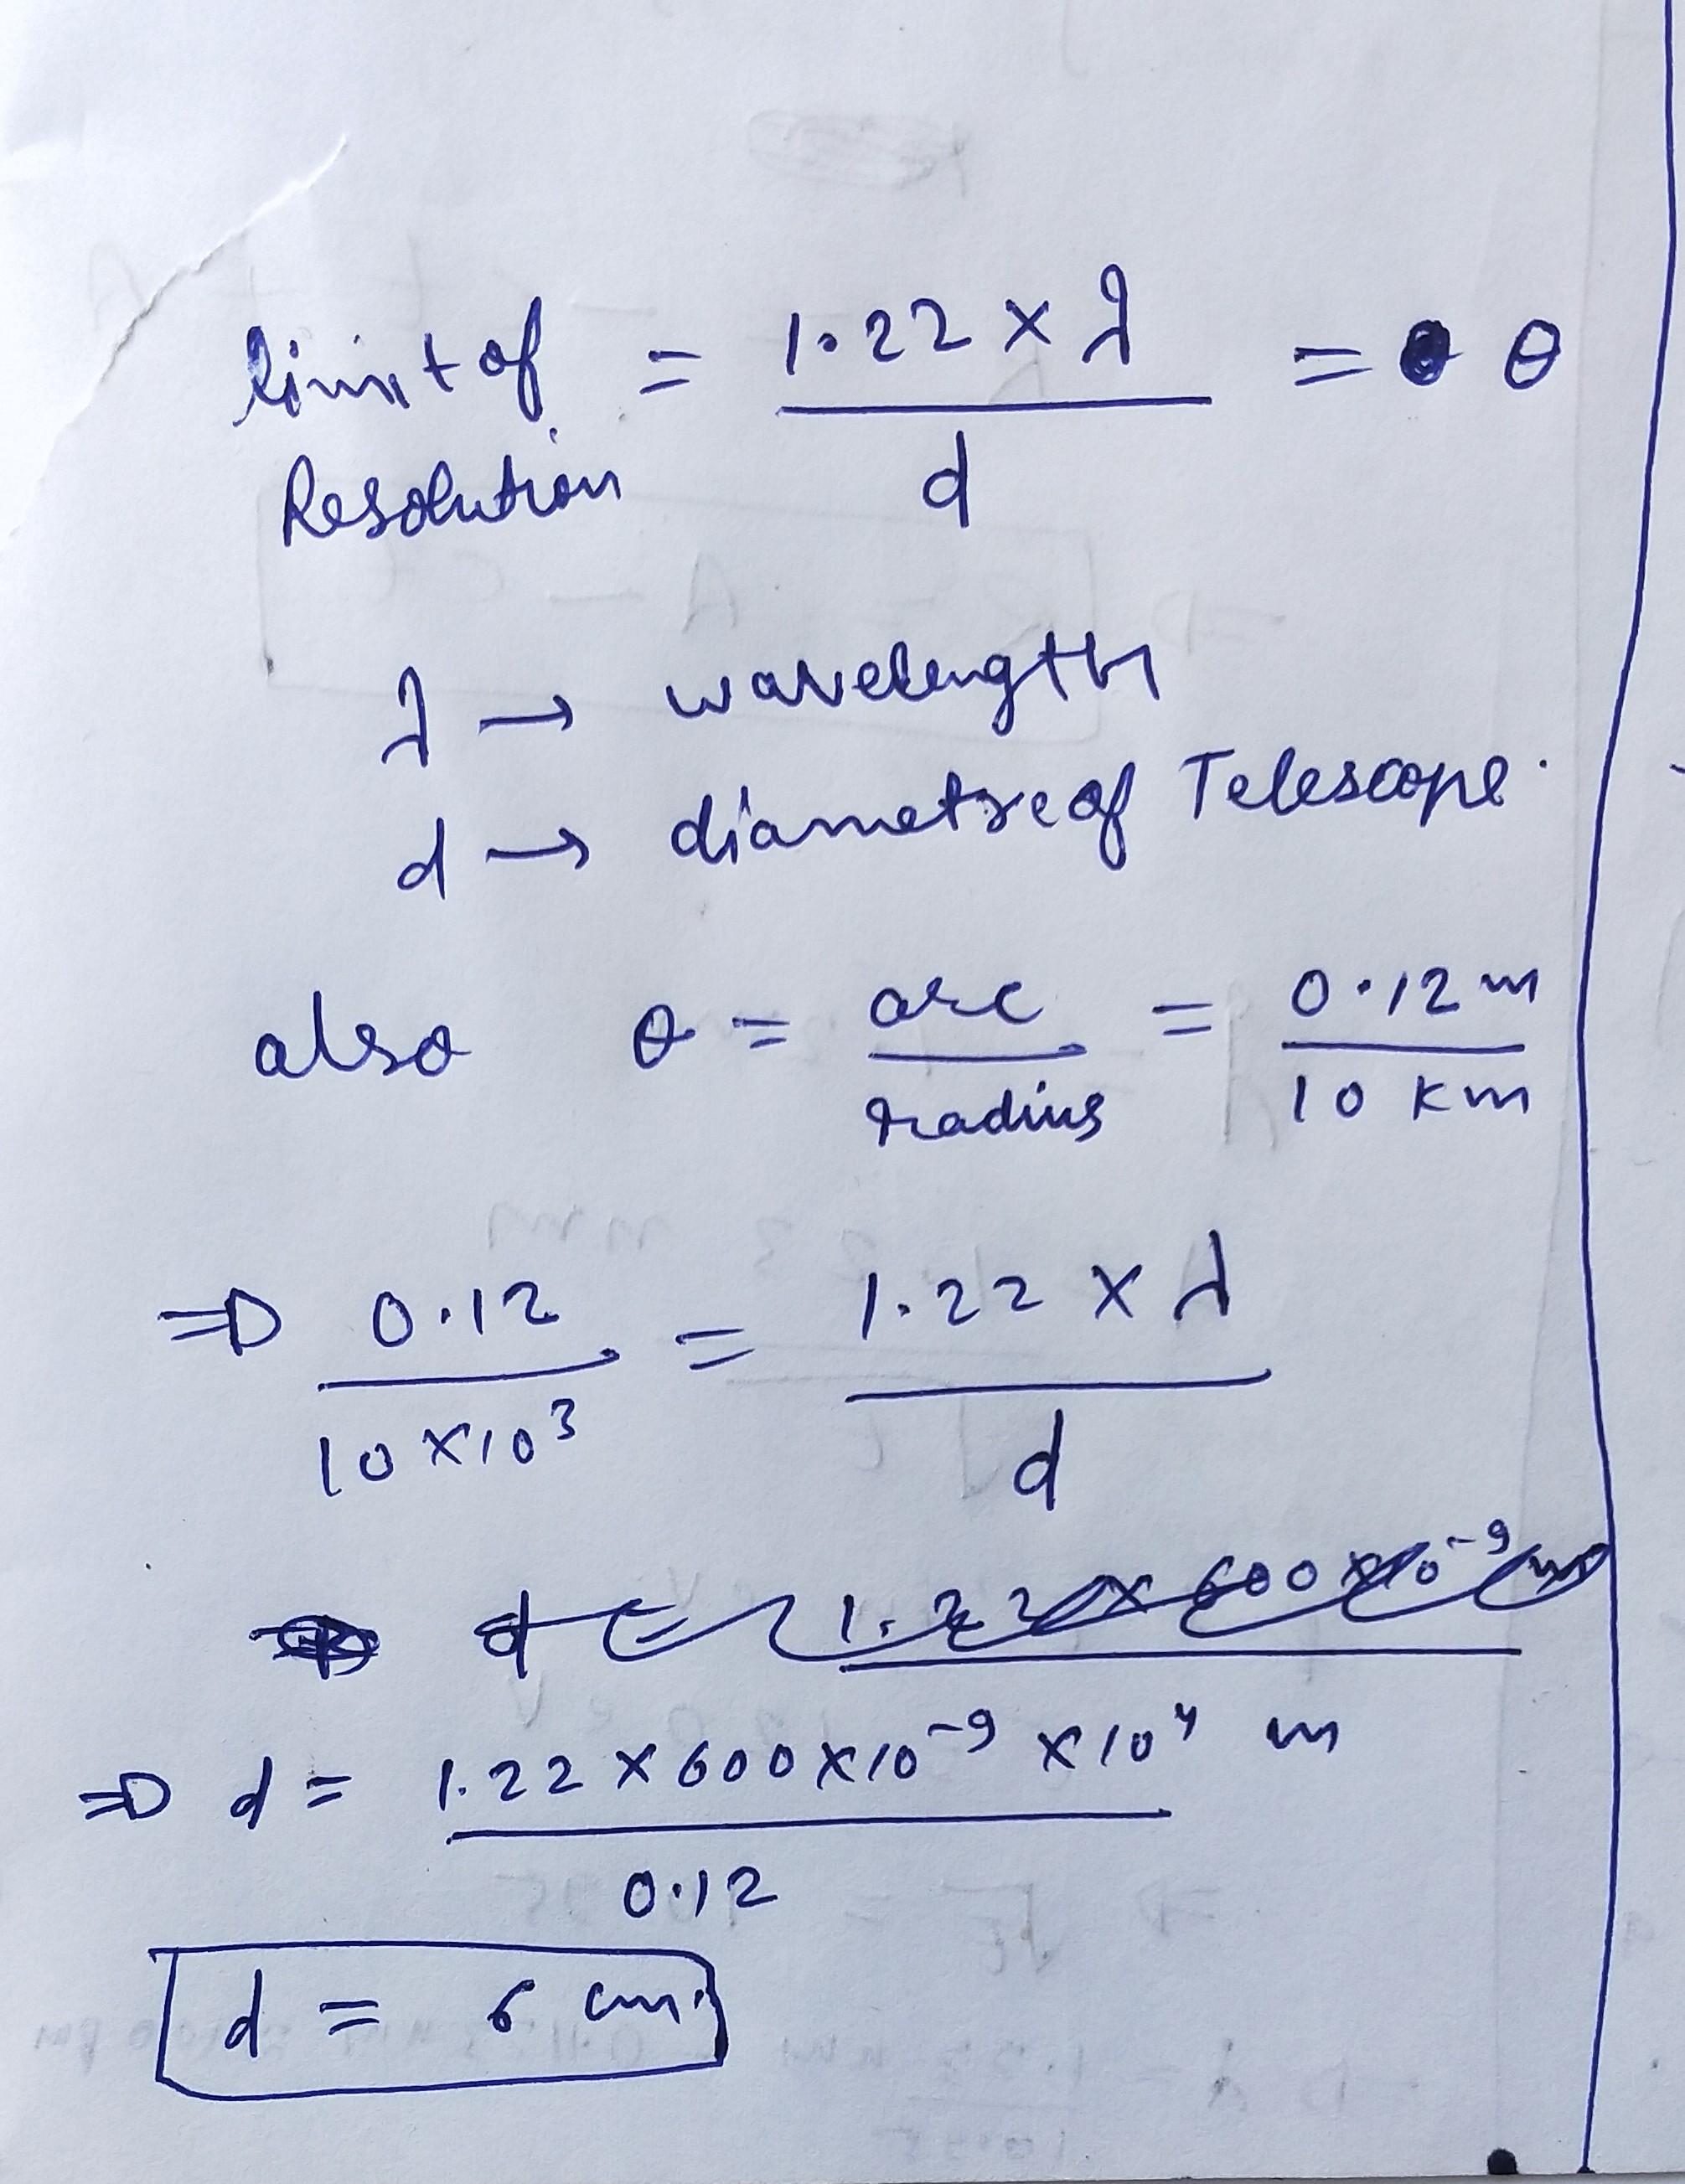 limit of = 1.22 × λ / d = θ
Resolution
λ → wavelength
d → diametre of Telescope.
also θ = arc / radius = 0.12 m / 10 Km
⇒ 0.12 / 10 × 10³ = 1.22 × λ / d
d = 1.22 × 600 × 10⁻⁹ m
⇒ d = 1.22 × 600 × 10⁻⁹ × 10⁴ / 0.12 m
d = 6 cm.